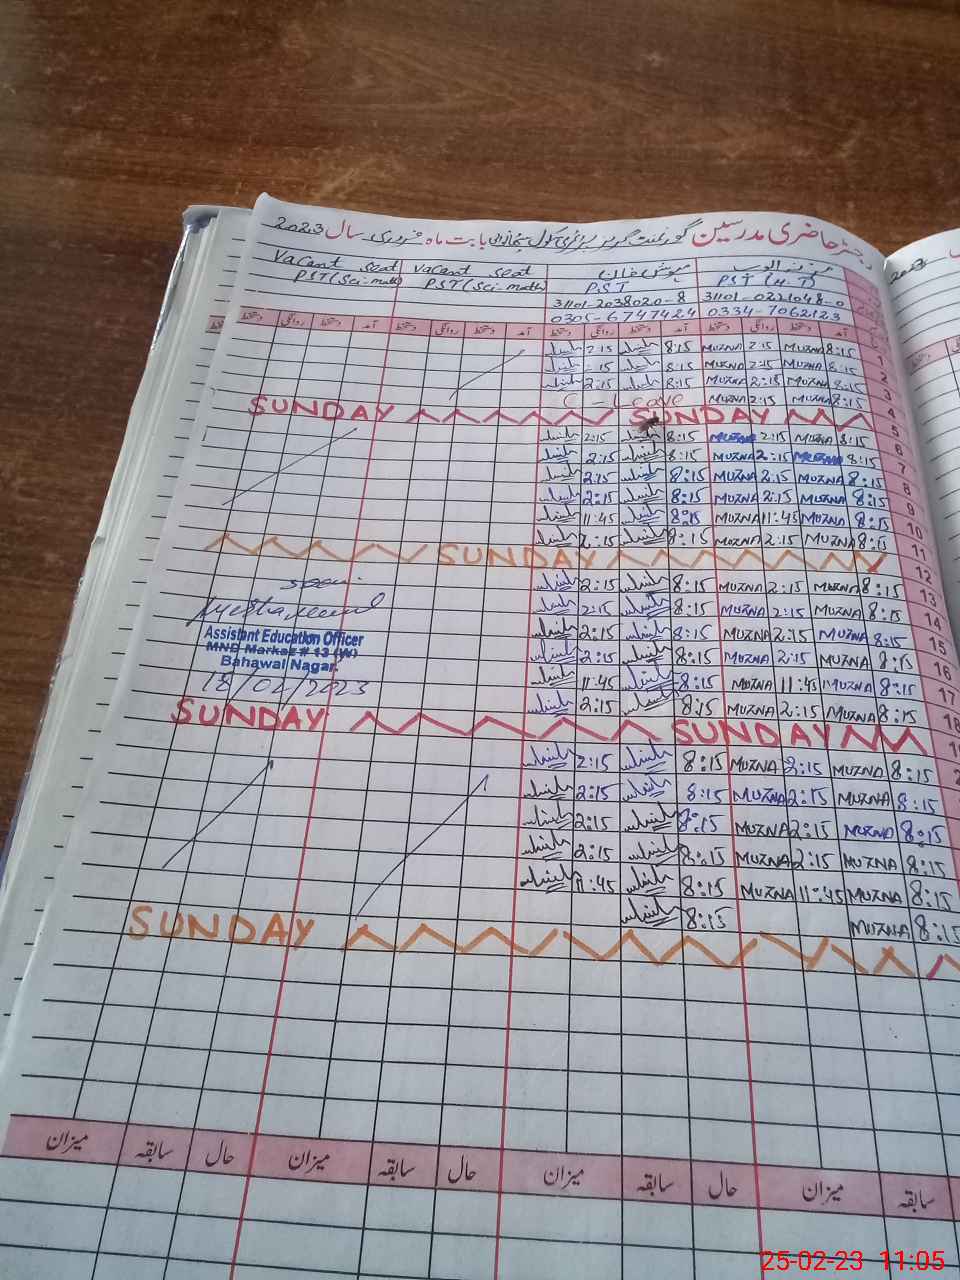 رجسٹر حاضری مدرسین گورنمنٹ گرلز پرائمری سکول بابت ماہ فروری سال 2023
مہوش خان Vacant seat Vacant seat
PST (H.T) PST PST (Sci-math) PST (Sci-math)
31101-0221048-0 31101-2038020-8
0334-7062123 0305-6747424
آمد دستخط روانگی دستخط آمد دستخط روانگی دستخط آمد دستخط روانگی دستخط آمد دستخط روانگی دستخط
1 8:15 MUZNA 2:15 MUZNA 8:15 2:15
2 8:15 MUZNA 2:15 MUZNA 8:15 :15
3 8:15 MUZNA 2:15 MUZNA 8:15 2:15
4 8:15 MUZNA 2:15 MUZNA C - Leave
5 SUNDAY SUNDAY
6 8:15 MUZNA 2:15 MUZNA 8:15 2:15
7 8:15 MUZNA 2:15 MUZNA 8:15 2:15
8 8:15 MUZNA 2:15 MUZNA 8:15 2:15
9 8:15 MUZNA 2:15 MUZNA 8:15 2:15
10 8:15 MUZNA 11:45 MUZNA 8:15 11:45
11 8:15 MUZNA 2:15 MUZNA 8:15 2:15
12 SUNDAY
13 8:15 MUZNA 2:15 MUZNA 8:15 2:15
14 8:15 MUZNA 2:15 MUZNA 8:15 2:15
15 8:15 MUZNA 2:15 MUZNA 8:15 2:15
16 8:15 MUZNA 2:15 MUZNA 8:15 2:15
17 8:15 MUZNA 11:45 MUZNA 8:15 11:45
18 8:15 MUZNA 2:15 MUZNA 8:15 2:15
seen
Assistant Education Officer
MND Markaz # 13 (W)
Bahawal Nagar.
18/02/2023
SUNDAY SUNDAY
8:15 MUZNA 2:15 MUZNA 8:15 2:15
8:15 MUZNA 2:15 MUZNA 8:15 2:15
8:15 MUZNA 2:15 MUZNA 8:15 2:15
8:15 MUZNA 2:15 MUZNA 8:15 2:15
8:15 MUZNA 11:45 MUZNA 8:15 11:45
8:15 MUZNA 8:15
SUNDAY
سابقہ میزان حال سابقہ میزان حال سابقہ میزان حال سابقہ میزان
2023
25-02-23 11:05